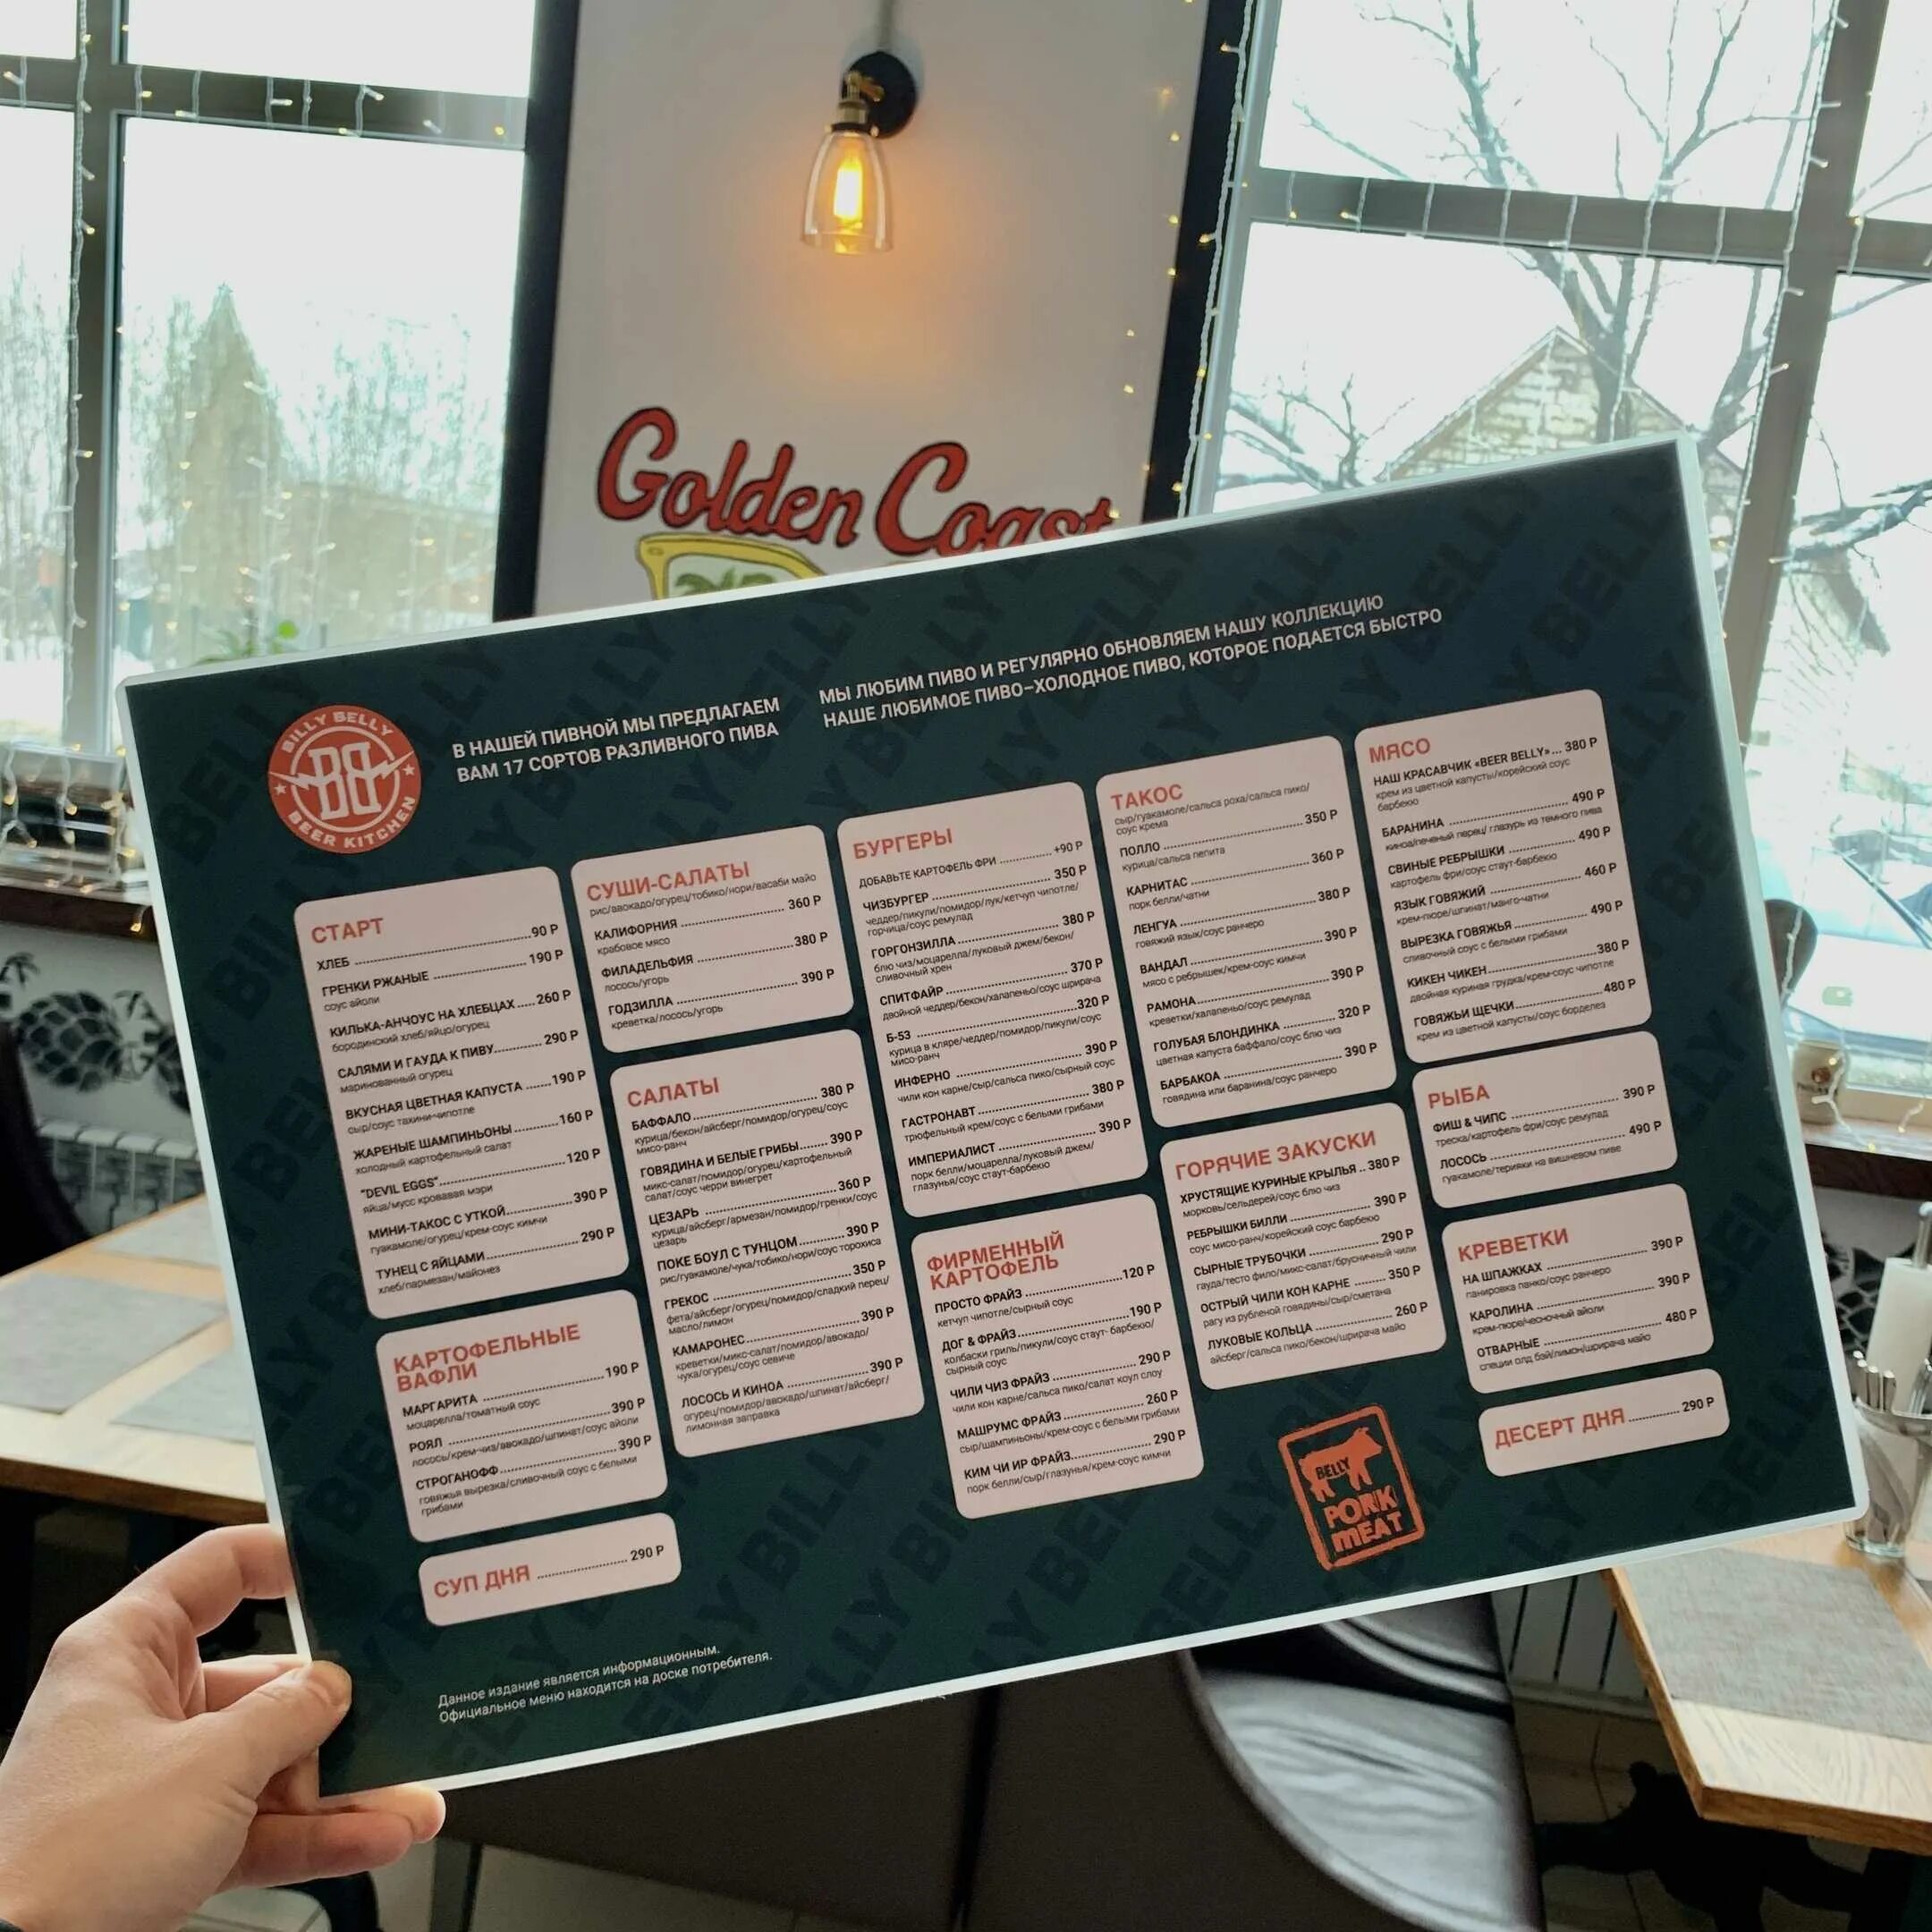 Golden Coast
BILLY BELLY
BB
BEER KITCHEN
В НАШЕЙ ПИВНОЙ МЫ ПРЕДЛАГАЕМ
ВАМ 17 СОРТОВ РАЗЛИВНОГО ПИВА
МЫ ЛЮБИМ ПИВО И РЕГУЛЯРНО ОБНОВЛЯЕМ НАШУ КОЛЛЕКЦИЮ
НАШЕ ЛЮБИМОЕ ПИВО–ХОЛОДНОЕ ПИВО, КОТОРОЕ ПОДАЕТСЯ БЫСТРО
СТАРТ
ХЛЕБ 90 Р
ГРЕНКИ РЖАНЫЕ 190 Р
соус айоли
КИЛЬКА-АНЧОУС НА ХЛЕБЦАХ 260 Р
бородинский хлеб/яйцо/огурец
САЛЯМИ И ГАУДА К ПИВУ 290 Р
маринованный огурец
ВКУСНАЯ ЦВЕТНАЯ КАПУСТА 190 Р
сыр/соус тахини-чипотле
ЖАРЕНЫЕ ШАМПИНЬОНЫ 160 Р
холодный картофельный салат
"DEVIL EGGS" 120 Р
яйца/мусс кровавая мэри
МИНИ-ТАКОС С УТКОЙ 390 Р
гуакамоле/огурец/крем-соус кимчи
ТУНЕЦ С ЯЙЦАМИ 290 Р
хлеб/пармезан/майонез
КАРТОФЕЛЬНЫЕ
ВАФЛИ
МАРГАРИТА 190 Р
моцарелла/томатный соус
РОЯЛ 390 Р
лосось/крем-чиз/авокадо/шпинат/соус айоли
СТРОГАНОФФ 390 Р
говяжья вырезка/сливочный соус с белыми
грибами
СУП ДНЯ 290 Р
СУШИ-САЛАТЫ
рис/авокадо/огурец/тобико/нори/васаби майо
КАЛИФОРНИЯ 360 Р
крабовое мясо
ФИЛАДЕЛЬФИЯ 380 Р
лосось/угорь
ГОДЗИЛЛА 390 Р
креветка/лосось/угорь
САЛАТЫ
БАФФАЛО 380 Р
курица/бекон/айсберг/помидор/огурец/соус
мисо-ранч
ГОВЯДИНА И БЕЛЫЕ ГРИБЫ 390 Р
микс-салат/помидор/огурец/картофельный
салат/соус черри винегрет
ЦЕЗАРЬ 360 Р
курица/айсберг/армезан/помидор/гренки/соус
цезарь
ПОКЕ БОУЛ С ТУНЦОМ 390 Р
рис/гуакамоле/чука/тобико/нори/соус торохиса
ГРЕКОС 350 Р
фета/айсберг/огурец/помидор/сладкий перец/
масло/лимон
КАМАРОНЕС 390 Р
креветки/микс-салат/помидор/авокадо/
чука/огурец/соус севиче
ЛОСОСЬ И КИНОА 390 Р
огурец/помидор/авокадо/шпинат/айсберг/
лимонная заправка
БУРГЕРЫ
ДОБАВЬТЕ КАРТОФЕЛЬ ФРИ +90 Р
ЧИЗБУРГЕР 350 Р
чеддер/пикули/помидор/лук/кетчуп чипотле/
горчица/соус ремулад
ГОРГОНЗИЛЛА 380 Р
блю чиз/моцарелла/луковый джем/бекон/
сливочный хрен
СПИТФАЙР 370 Р
двойной чеддер/бекон/халапеньо/соус шрирача
Б-53 320 Р
курица в кляре/чеддер/помидор/пикули/соус
мисо-ранч
ИНФЕРНО 390 Р
чили кон карне/сыр/сальса пико/сырный соус
ГАСТРОНАВТ 380 Р
трюфельный крем/соус с белыми грибами
ИМПЕРИАЛИСТ 390 Р
порк белли/моцарелла/луковый джем/
глазунья/соус стаут-барбекю
ФИРМЕННЫЙ
КАРТОФЕЛЬ
ПРОСТО ФРАЙЗ 120 Р
кетчуп чипотле/сырный соус
ДОГ & ФРАЙЗ 190 Р
колбаски гриль/пикули/соус стаут- барбекю/
сырный соус
ЧИЛИ ЧИЗ ФРАЙЗ 290 Р
чили кон карне/сальса пико/салат коул слоу
МАШРУМС ФРАЙЗ 260 Р
сыр/шампиньоны/крем-соус с белыми грибами
КИМ ЧИ ИР ФРАЙЗ 290 Р
порк белли/сыр/глазунья/крем-соус кимчи
ТАКОС
сыр/гуакамоле/сальса роха/сальса пико/
соус крема
ПОЛЛО 350 Р
курица/сальса пепита
КАРНИТАС 360 Р
порк белли/чатни
ЛЕНГУА 380 Р
говяжий язык/соус ранчеро
ВАНДАЛ 390 Р
мясо с ребрышек/крем-соус кимчи
РАМОНА 390 Р
креветки/халапеньо/соус ремулад
ГОЛУБАЯ БЛОНДИНКА 320 Р
цветная капуста баффало/соус блю чиз
БАРБАКОА 390 Р
говядина или баранина/соус ранчеро
ГОРЯЧИЕ ЗАКУСКИ
ХРУСТЯЩИЕ КУРИНЫЕ КРЫЛЬЯ 380 Р
морковь/сельдерей/соус блю чиз
РЕБРЫШКИ БИЛЛИ 390 Р
соус мисо-ранч/корейский соус барбекю
СЫРНЫЕ ТРУБОЧКИ 290 Р
гауда/тесто фило/микс-салат/брусничный чили
ОСТРЫЙ ЧИЛИ КОН КАРНЕ 350 Р
рагу из рубленой говядины/сыр/сметана
ЛУКОВЫЕ КОЛЬЦА 260 Р
айсберг/сальса пико/бекон/шрирача майо
BELLY
PORK
MEAT
МЯСО
НАШ КРАСАВЧИК «BEER BELLY» 380 Р
крем из цветной капусты/корейский соус
барбекю
БАРАНИНА 490 Р
киноа/печеный перец/ глазурь из темного пива
СВИНЫЕ РЕБРЫШКИ 490 Р
картофель фри/соус стаут-барбекю
ЯЗЫК ГОВЯЖИЙ 460 Р
крем-пюре/шпинат/манго-чатни
ВЫРЕЗКА ГОВЯЖЬЯ 490 Р
сливочный соус с белыми грибами
КИКЕН ЧИКЕН 380 Р
двойная куриная грудка/крем-соус чипотле
ГОВЯЖЬИ ЩЕЧКИ 480 Р
крем из цветной капусты/соус борделез
РЫБА
ФИШ & ЧИПС 390 Р
треска/картофель фри/соус ремулад
ЛОСОСЬ 490 Р
гуакамоле/терияки на вишневом пиве
КРЕВЕТКИ
НА ШПАЖКАХ 390 Р
панировка панко/соус ранчеро
КАРОЛИНА 390 Р
крем-пюре/чесночный айоли
ОТВАРНЫЕ 480 Р
специи олд бэй/лимон/шрирача майо
ДЕСЕРТ ДНЯ 290 Р
Данное издание является информационным.
Официальное меню находится на доске потребителя.